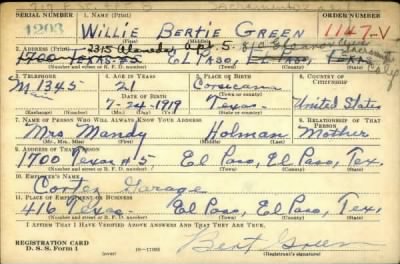 SERIAL NUMBER 1. NAME (Print) ORDER NUMBER
1203 WILLIE BERTIE GREEN 1147-V
(First) (Middle) (Last)
2. ADDRESS (Print) 2315 Alameda, Apt. 5.
1700 TEXAS #5 EL PASO, EL PASO, TEXAS
(Number and street or R. F. D. number) (Town) (County) (State)
3. TELEPHONE 4. AGE IN YEARS 5. PLACE OF BIRTH 6. COUNTRY OF CITIZENSHIP
M 1345 21 Corsicana
DATE OF BIRTH (Town or county)
7-24-1919 Texas United States
(Mo.) (Day) (Yr.) (State or country)
7. NAME OF PERSON WHO WILL ALWAYS KNOW YOUR ADDRESS 8. RELATIONSHIP OF THAT PERSON
Mrs. Mandy Holman Mother
(Mr., Mrs., Miss) (First) (Middle) (Last)
9. ADDRESS OF THAT PERSON
1700 Texas #5, El Paso, El Paso, Tex.
(Number and street or R. F. D. number) (Town) (County) (State)
10. EMPLOYER'S NAME
Cortez Garage
11. PLACE OF EMPLOYMENT OR BUSINESS
416 Texas El Paso, El Paso, Tex.
(Number and street or R. F. D. number) (Town) (County) (State)
I AFFIRM THAT I HAVE VERIFIED ABOVE ANSWERS AND THAT THEY ARE TRUE.
REGISTRATION CARD
D. S. S. Form 1 (over) Bert Green
(Registrant's signature)